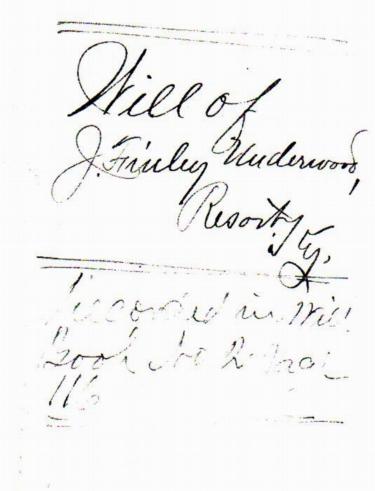 Will of
J. Finley Underwood,
Resort, Ky.
Recorded in Will
Book No 2 Page
116